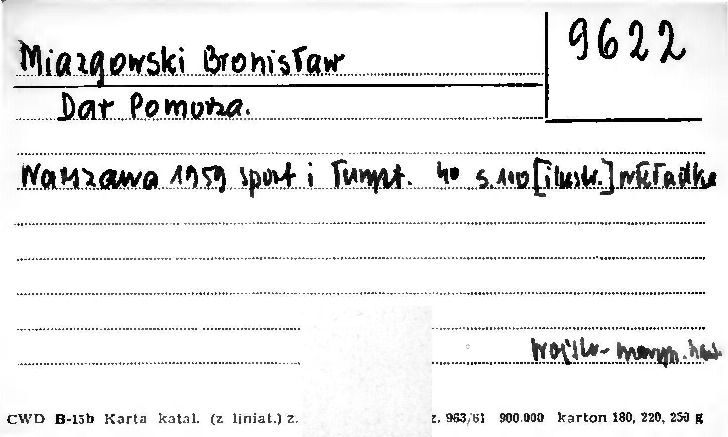 Miazgowski Bronisław
9622
Dar Pomorza.
Warszawa 1959 Sport i Turyst. 4° s. 110 [ilustr.] wkładka
CWD B-15b Karta katal. (z liniat.) z. z. 963/61 900.000 karton 180, 220, 250 g